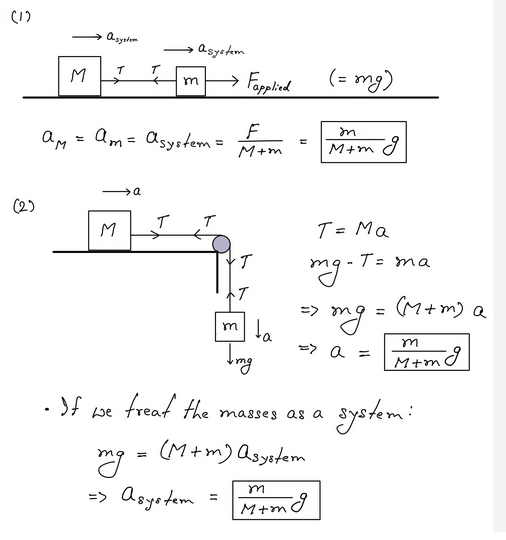 (1)
→ a_system
→ a_system
M T T m F_applied (= mg)
a_M = a_m = a_system = F/(M+m) = m/(M+m) g
(2)
→ a
M T T
T = Ma
T
mg - T = ma
T
=> mg = (M+m) a
m ↓a
=> a = m/(M+m) g
↓mg
• If we treat the masses as a system:
mg = (M+m) a_system
=> a_system = m/(M+m) g